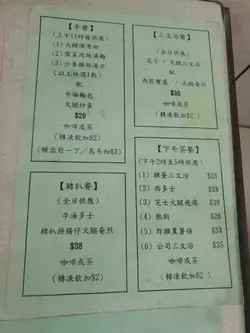 【午餐】
(上午11時後供應)
(1) 火腿湯意粉
(2) 雪菜肉絲湯麵
(3) 沙爹雞絲湯米
(以上任選1款)
配
牛油麵包
火腿炒蛋
$29
咖啡或茶
(轉凍飲加$2)
(轉出前一丁/烏冬加$3)
【三文治餐】
(全日供應)
芝士/火腿三文治
配
西煎雙蛋、火腿奄列
$30
咖啡或茶
(轉凍飲加$2)
【豬扒餐】
(全日供應)
牛油多士
豬扒拼腸仔火腿奄列
$38
咖啡或茶
(轉凍飲加$2)
【下午茶餐】
(下午2時至5時供應)
(1) 雞蛋三文治 $26
(2) 西多士 $28
(3) 芝士火腿 $28
(4) 熱狗 $28
(5) 炸雞翼薯條 $34
(6) 公司三文治 $35
咖啡或茶
(轉凍飲加$2)